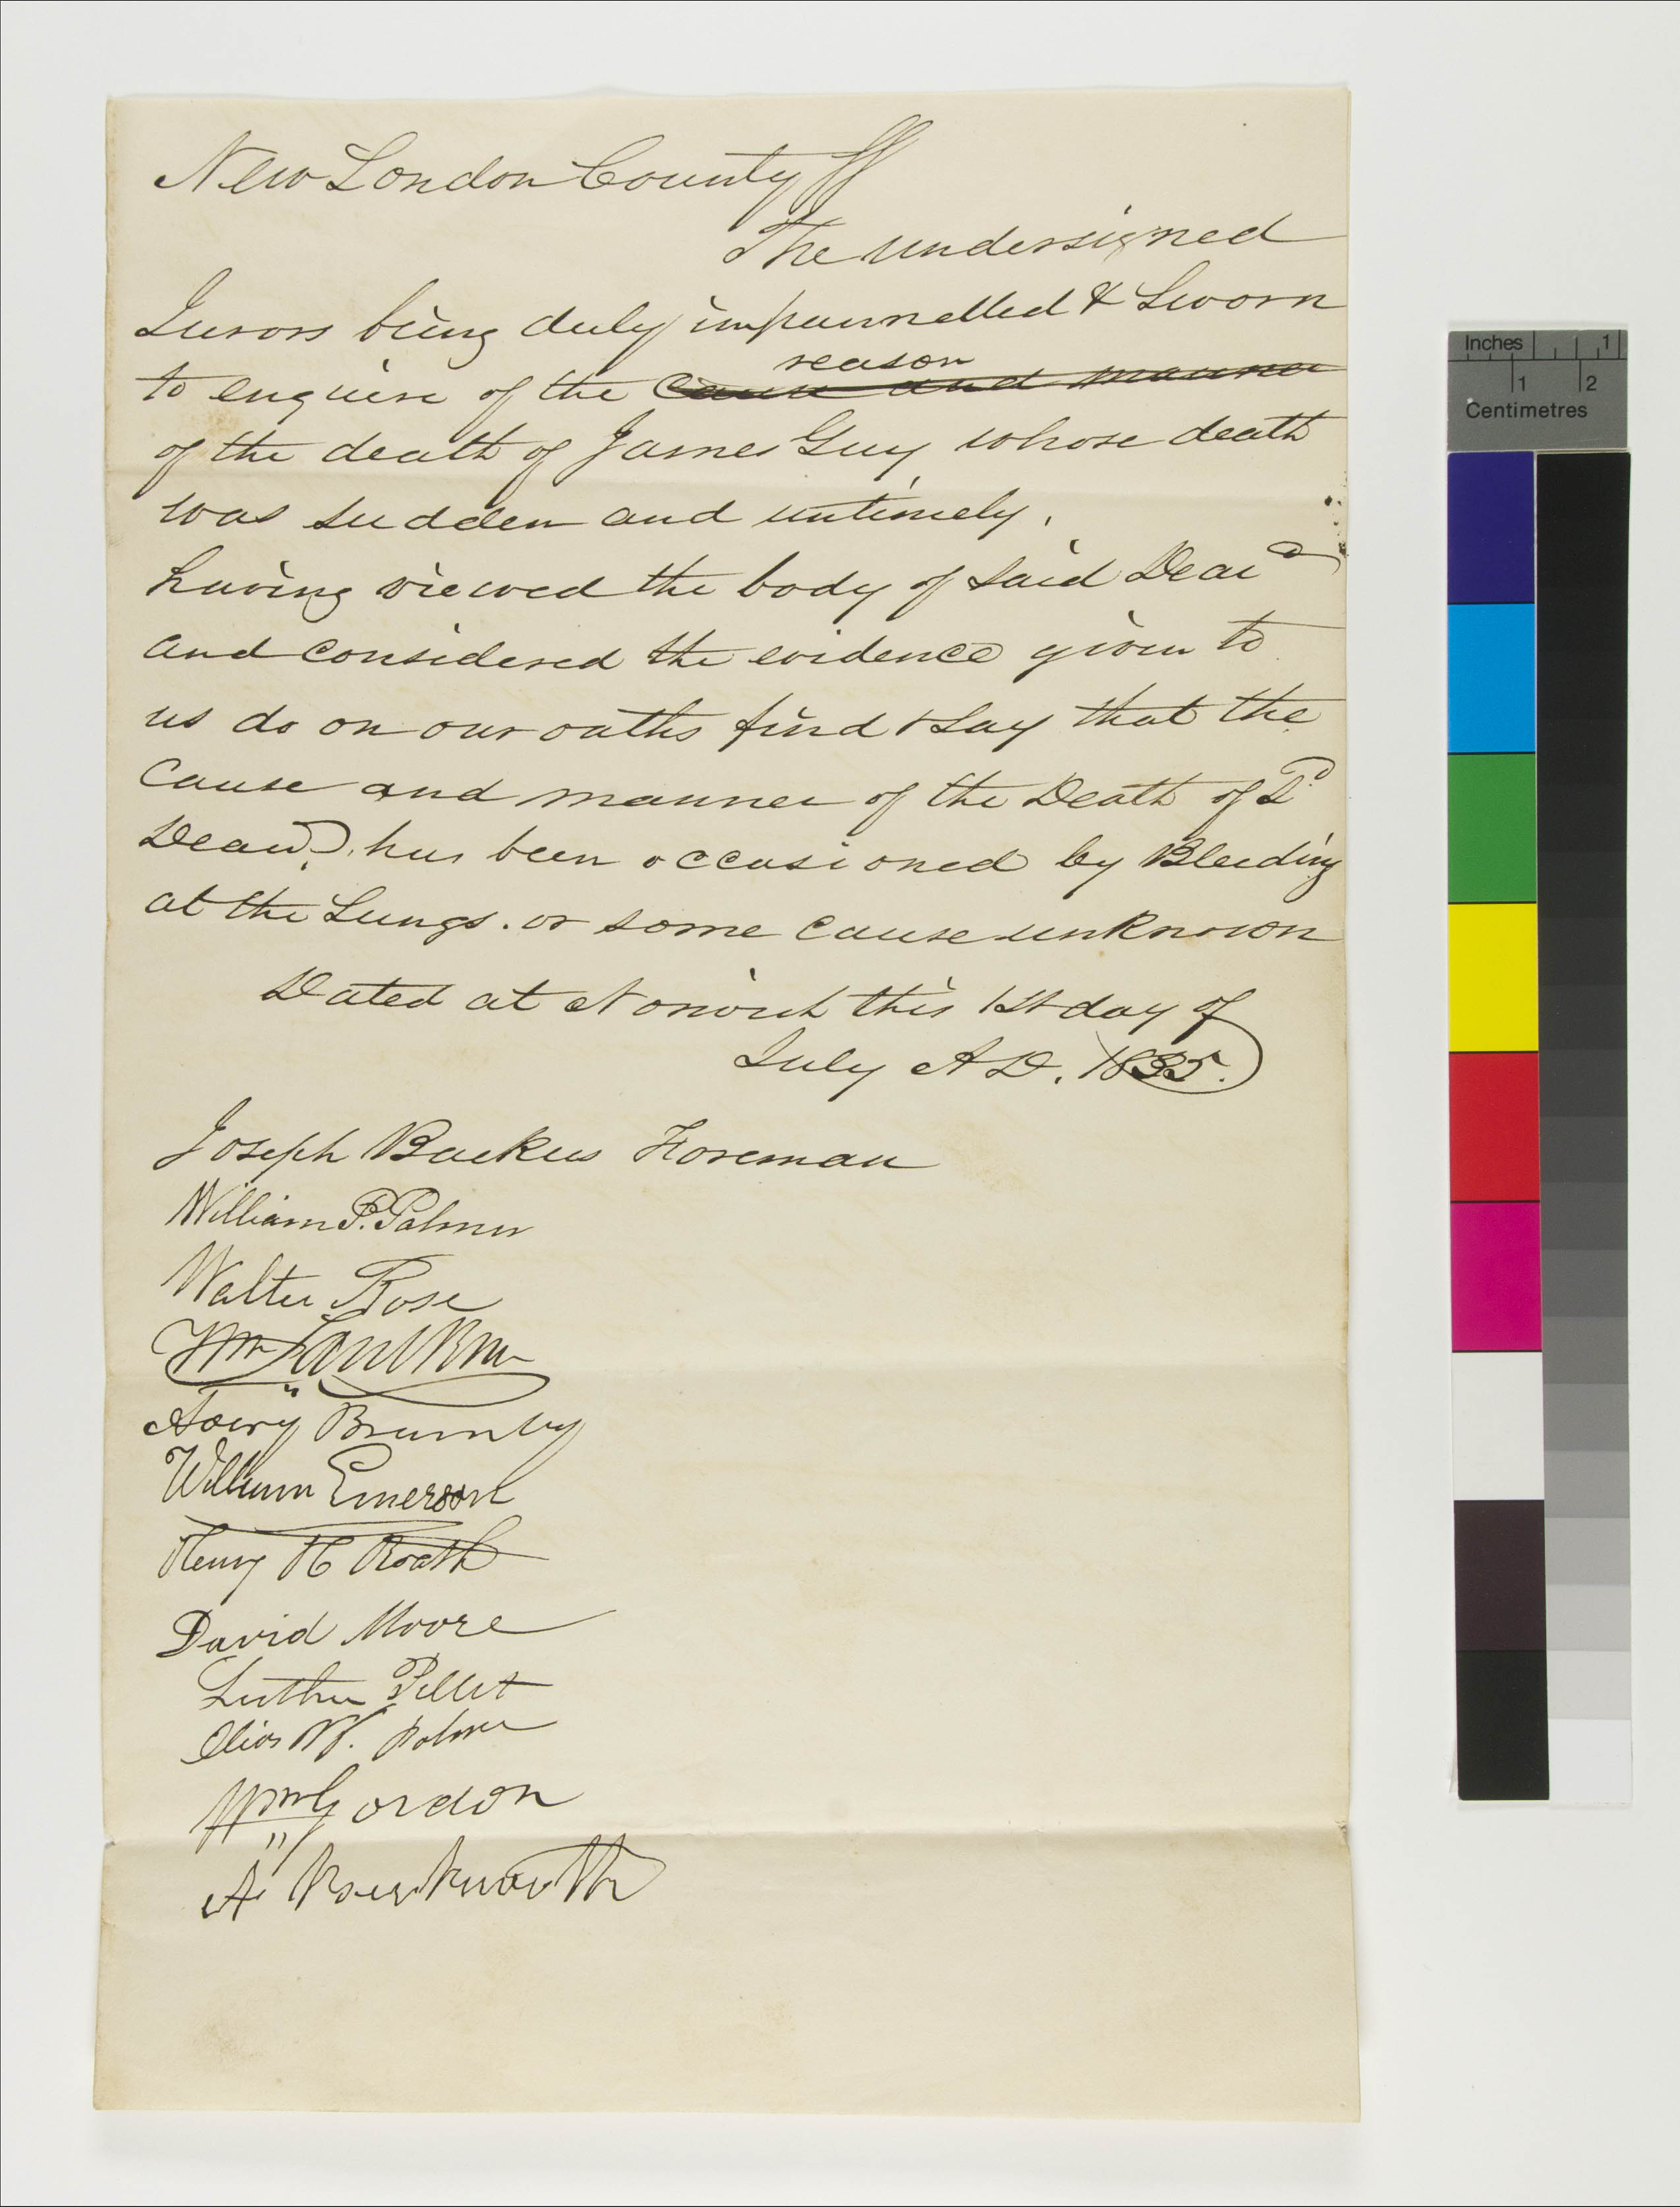 New London County ss
The undersigned
Jurors being duly impannelled & Sworn
reason
to enquire of the Cause and manner
of the death of James Guy whose death
was sudden and untimely,
having viewed the body of said Decd
and considered the evidence given to
us do on our oaths find & Say that the
Cause and manner of the Death of Sd
Decd. has been occasioned by Bleeding
at the Lungs. or some cause unknown
Dated at Norwich this 1st day of
July A D. 1835.
Joseph Backus Foreman
William P. Palmer
Walter Rose
Wm
Brumbly
William Emerson
Henry H Roath
David Moore
Luther Pellet
Elias W. Palmer
Wm Gordon
A
Inches 1
1 2
Centimetres